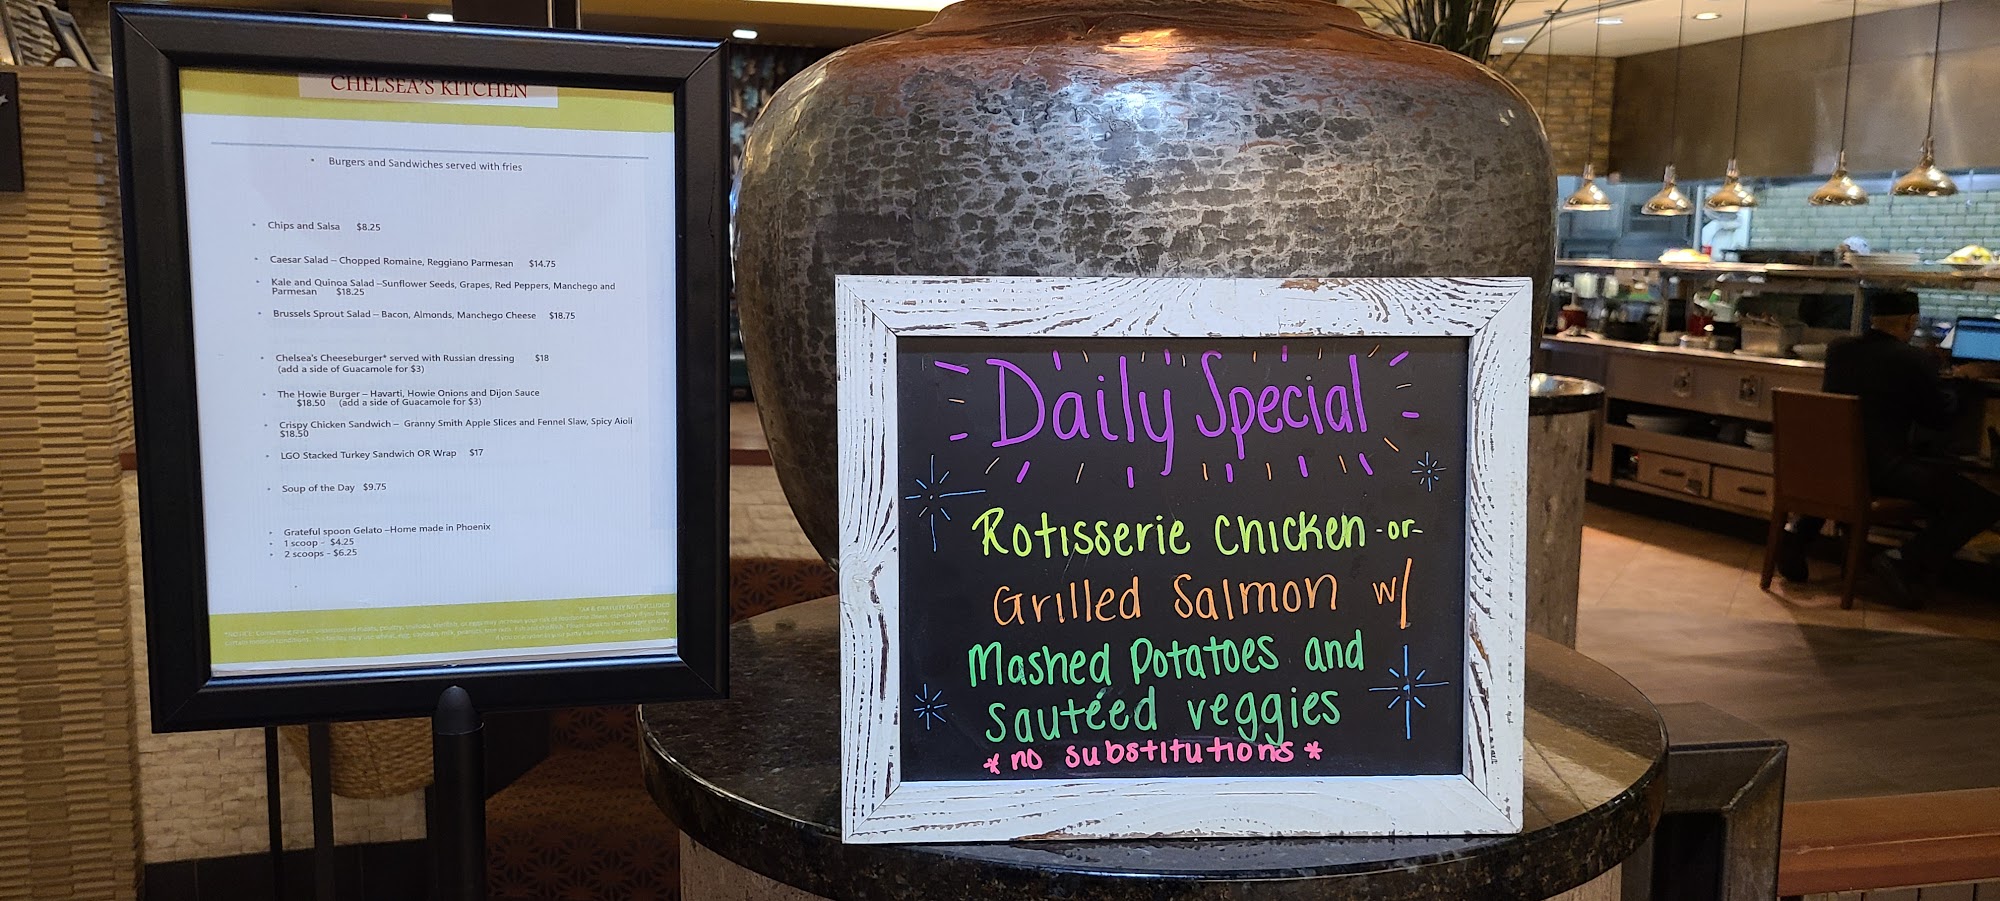 CHELSEA'S KITCHEN
• Burgers and Sandwiches served with fries
• Chips and Salsa $8.25
• Caesar Salad – Chopped Romaine, Reggiano Parmesan $14.75
• Kale and Quinoa Salad –Sunflower Seeds, Grapes, Red Peppers, Manchego and
Parmesan $18.25
• Brussels Sprout Salad – Bacon, Almonds, Manchego Cheese $18.75
• Chelsea's Cheeseburger* served with Russian dressing $18
(add a side of Guacamole for $3)
• The Howie Burger – Havarti, Howie Onions and Dijon Sauce
$18.50 (add a side of Guacamole for $3)
• Crispy Chicken Sandwich – Granny Smith Apple Slices and Fennel Slaw, Spicy Aioli
$18.50
• LGO Stacked Turkey Sandwich OR Wrap $17
• Soup of the Day $9.75
• Grateful spoon Gelato –Home made in Phoenix
• 1 scoop - $4.25
• 2 scoops - $6.25
Daily Special
Rotisserie Chicken -or-
Grilled Salmon w/
Mashed Potatoes and
Sautéed veggies
* no substitutions *